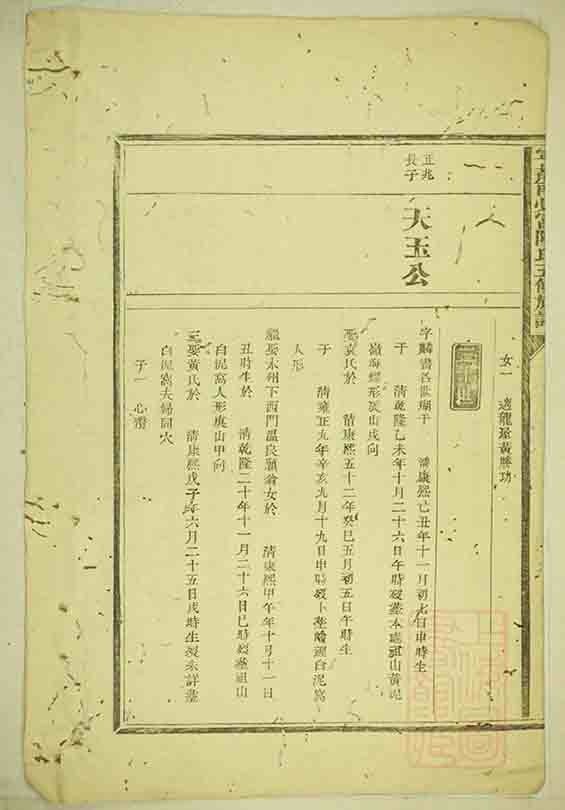 女一 適龍黃勝功
正兆
長子
天玉公
字麟書名
于 清康熙己丑年十一月初七日申時生
于 清乾隆乙未年十月二十六日午時歿葬本處祖山黃泥
嶺海螺形艮山戌向
娶袁氏於 清康熙五十二年癸巳五月初五日午時生
于 清雍正九年辛亥九月十九日申時歿卜葬 白泥窩
人形
繼娶永州下西門溫良 翁女於 清康熙甲午年十月十一日
丑時生於 清乾隆二十年十一月二十六日巳時歿葬祖山
白泥窩人形庚山甲向
三娶黃氏於 清康熙戊子年六月二十五日戌時生歿未詳葬
白泥窩夫婦同穴
子一 心